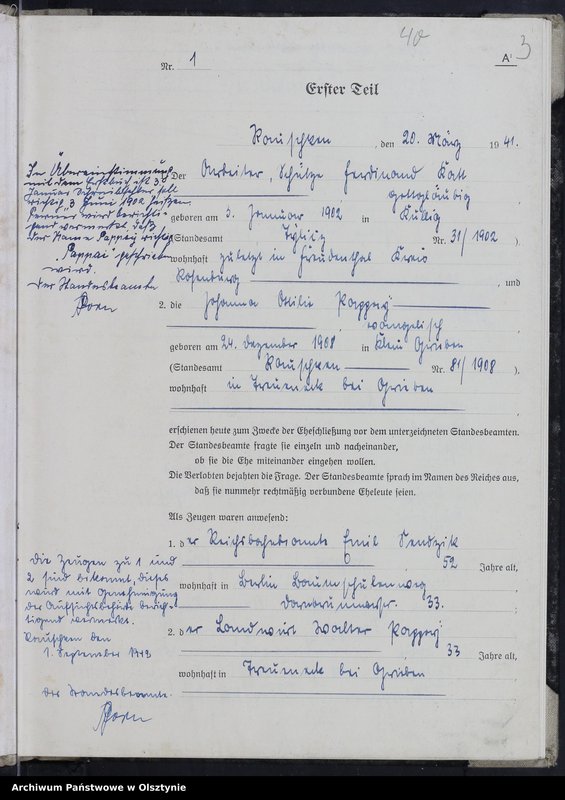 40
3
A¹
Nr. 1
Erster Teil
Rauschken, den 20. März 1941.
1. Der Arbeiter, Schütze Ferdinand Katt
gottgläubig
geboren am 3. Januar 1902 in
(Standesamt Nr. 31/1902).
wohnhaft zuletzt in Freudenthal Kreis
Rosenberg, und
2. die Johanna Ottilie Pappey
, evangelisch
geboren am 24. Dezember 1908 in Klein Grieben
(Standesamt Rauschken Nr. 81/1908).
wohnhaft in Treueneck bei Grieben
erschienen heute zum Zwecke der Eheschließung vor dem unterzeichneten Standesbeamten.
Der Standesbeamte fragte sie einzeln und nacheinander,
ob sie die Ehe miteinander eingehen wollen.
Die Verlobten bejahten die Frage. Der Standesbeamte sprach im Namen des Reiches aus,
daß sie nunmehr rechtmäßig verbundene Eheleute seien.
Als Zeugen waren anwesend:
1. der Reichsbahnbeamte Emil Sendzik
52 Jahre alt,
wohnhaft in Berlin Baumschulenweg
33.
2. der Landwirt Walter Pappey
33 Jahre alt,
wohnhaft in Treueneck bei Grieben
In Übereinstimmung
mit dem Erstbuch ist 3.
Januar Schreibfehler soll
richtig 3. Juni 1902 heißen
Ferner wird berichti-
gend vermerkt, daß
der Name Pappey richtig
"Pappai" geschrieben
wird.
Der Standesbeamte
Die Zeugen zu 1 und
2 sind bekannt, dieses
wird mit Genehmigung
der Aufsichtsbehörde berich-
tigend vermerkt.
Rauschken den
1. September 1942
Der Standesbeamte.
Archiwum Państwowe w Olsztynie